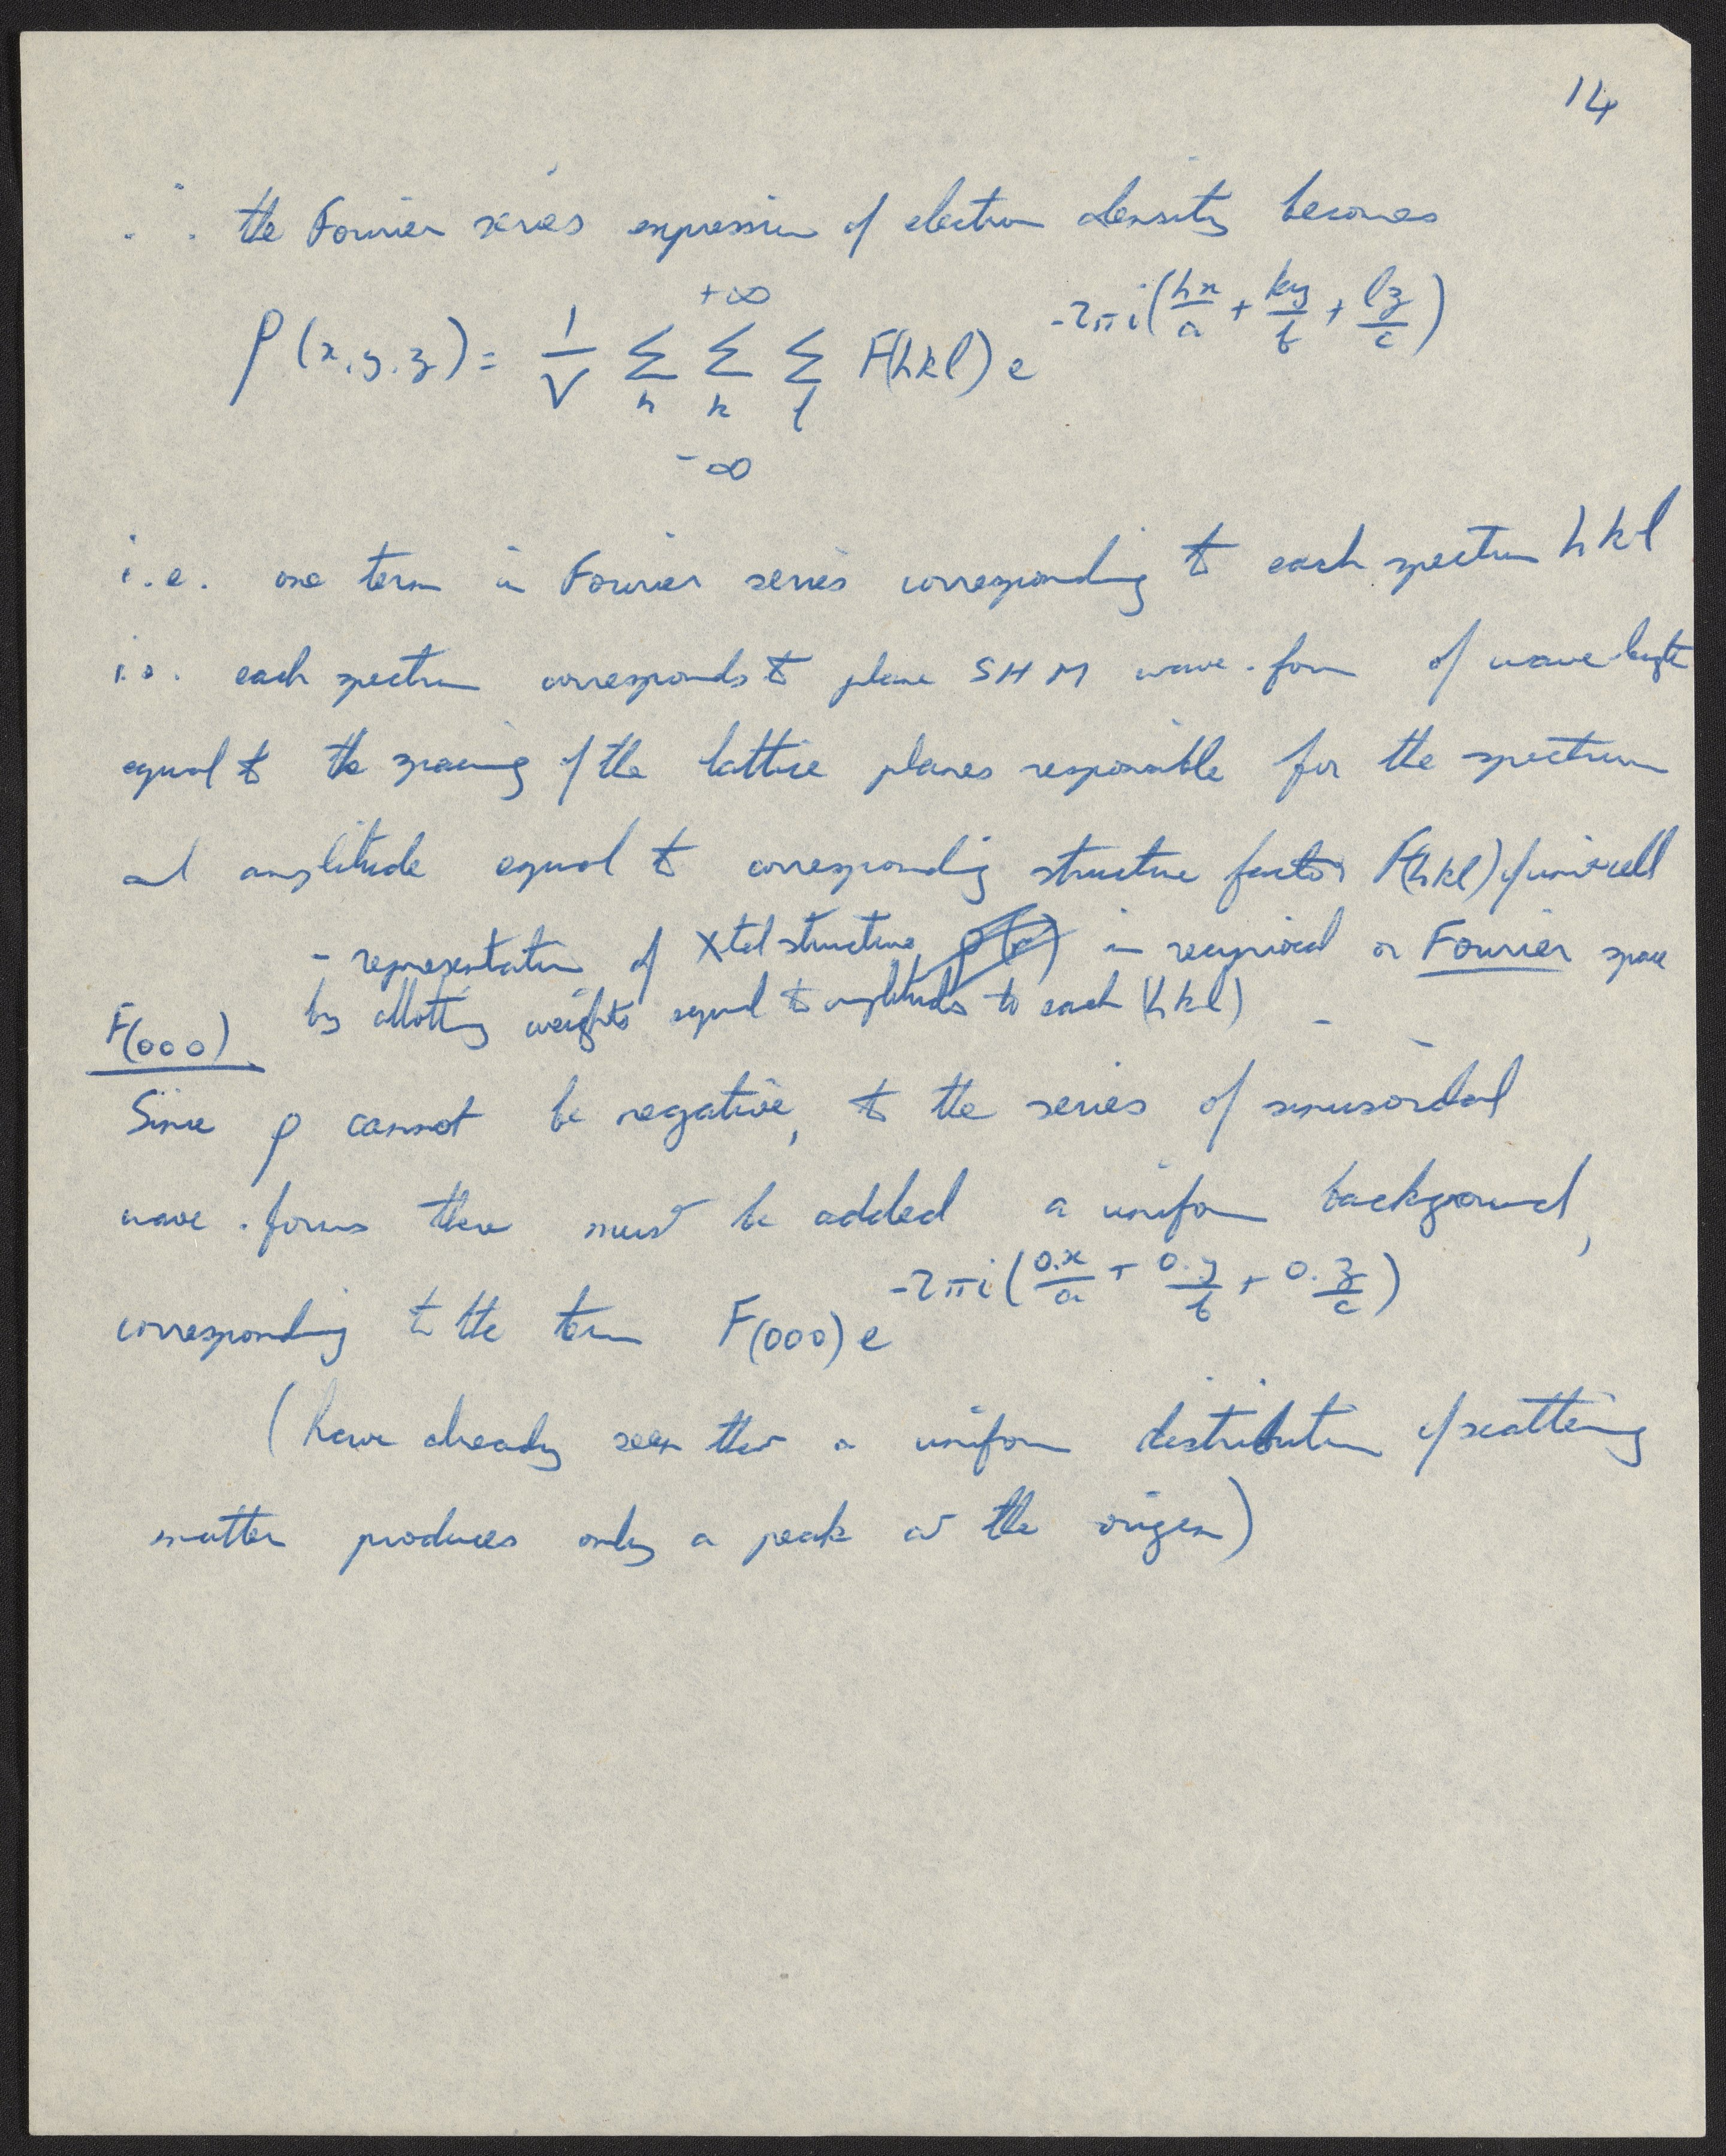 14
∴ the Fourier series expression of electron density becomes
ρ(x.y.z) = 1/V +∞ Σh Σk Σl -∞ F(hkl) e^-2πi(hx/a + ky/b + lz/c)
i.e. one term in Fourier series corresponding to each spectrum hkl
i.e. each spectrum corresponds to plane SHM wave-form of wavelength
equal to the spacing of the lattice planes responsible for the spectrum
and amplitude equal to corresponding structure factor F(hkl) of unit cell
- representation of Xtal structure, ρ(r) in reciprocal or Fourier space
by allotting weights equal to amplitudes to each (hkl) -
F(000).
Since ρ cannot be negative, to the series of sinusoidal
wave-forms there must be added a uniform background,
corresponding to the term F(000) e^-2πi(0.x/a + 0.y/b + 0.z/c)
(have already seen that a uniform distribution of scattering
matter produces only a peak at the origin)